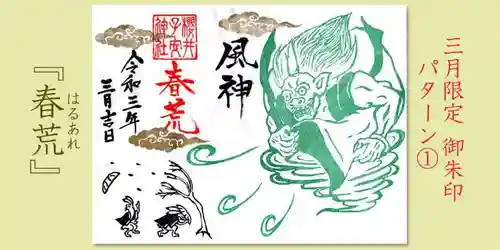 三月限定 御朱印
パターン①
風神
櫻井
子安
神社
春荒
令和三年
三月吉日
『春荒』
はるあれ